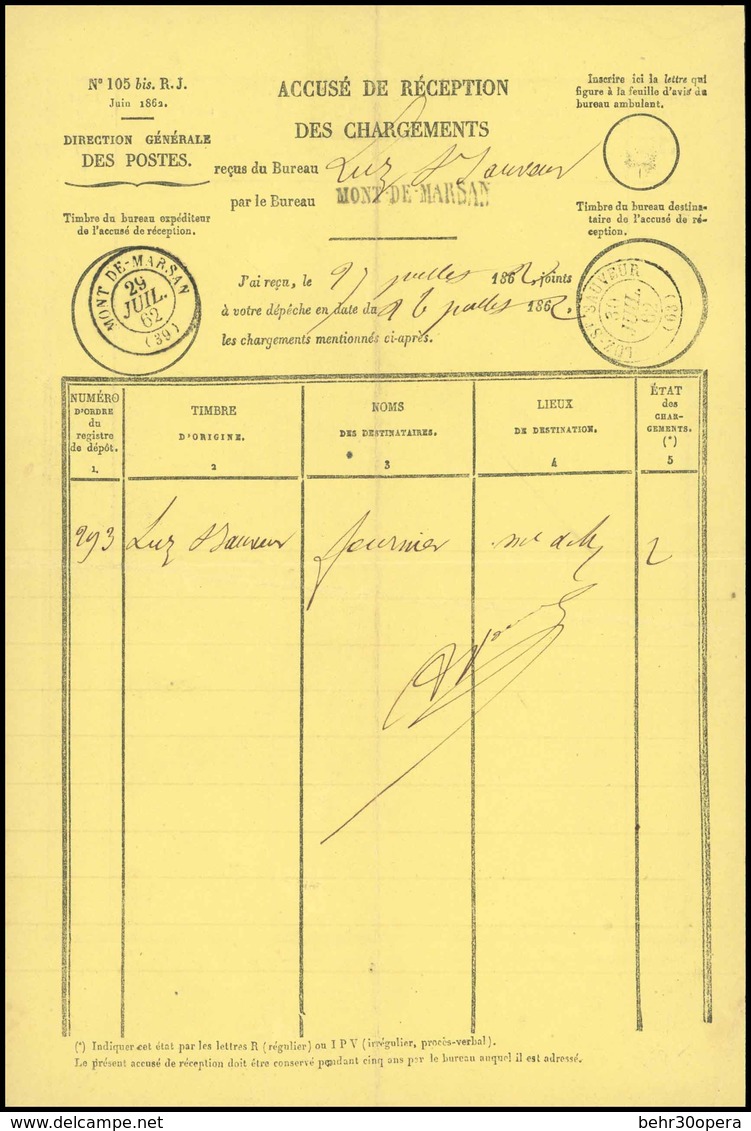 N° 105 bis. R. J.
Juin 1862.
DIRECTION GÉNÉRALE
DES POSTES.
Timbre du bureau expéditeur
de l'accusé de réception.
ACCUSÉ DE RÉCEPTION
DES CHARGEMENTS
reçus du Bureau Luz St Sauveur
par le Bureau MONT-DE-MARSAN
Inscrire ici la lettre qui
figure à la feuille d'avis du
bureau ambulant.
Timbre du bureau destina-
taire de l'accusé de ré-
ception.
MONT-DE-MARSAN
29
JUIL.
62
(39)
J'ai reçu, le 27 juillet 1862, joints
à votre dépêche en date du 26 juillet 1862.
les chargements mentionnés ci-après.
LUZ-ST-SAUVEUR
30
JUIL.
62
(63)
NUMÉRO
D'ORDRE
du
registre
de dépôt.
1.
TIMBRE
D'ORIGINE.
2
NOMS
DES DESTINATAIRES.
3
LIEUX
DE DESTINATION.
4
ÉTAT
des
CHAR-
GEMENTS.
(*)
5
293 Luz St Sauveur fournier
(*) Indiquer cet état par les lettres R (régulier) ou I P V (irrégulier, procès-verbal).
Le présent accusé de réception doit être conservé pendant cinq ans par le bureau auquel il est adressé.
behr30opera